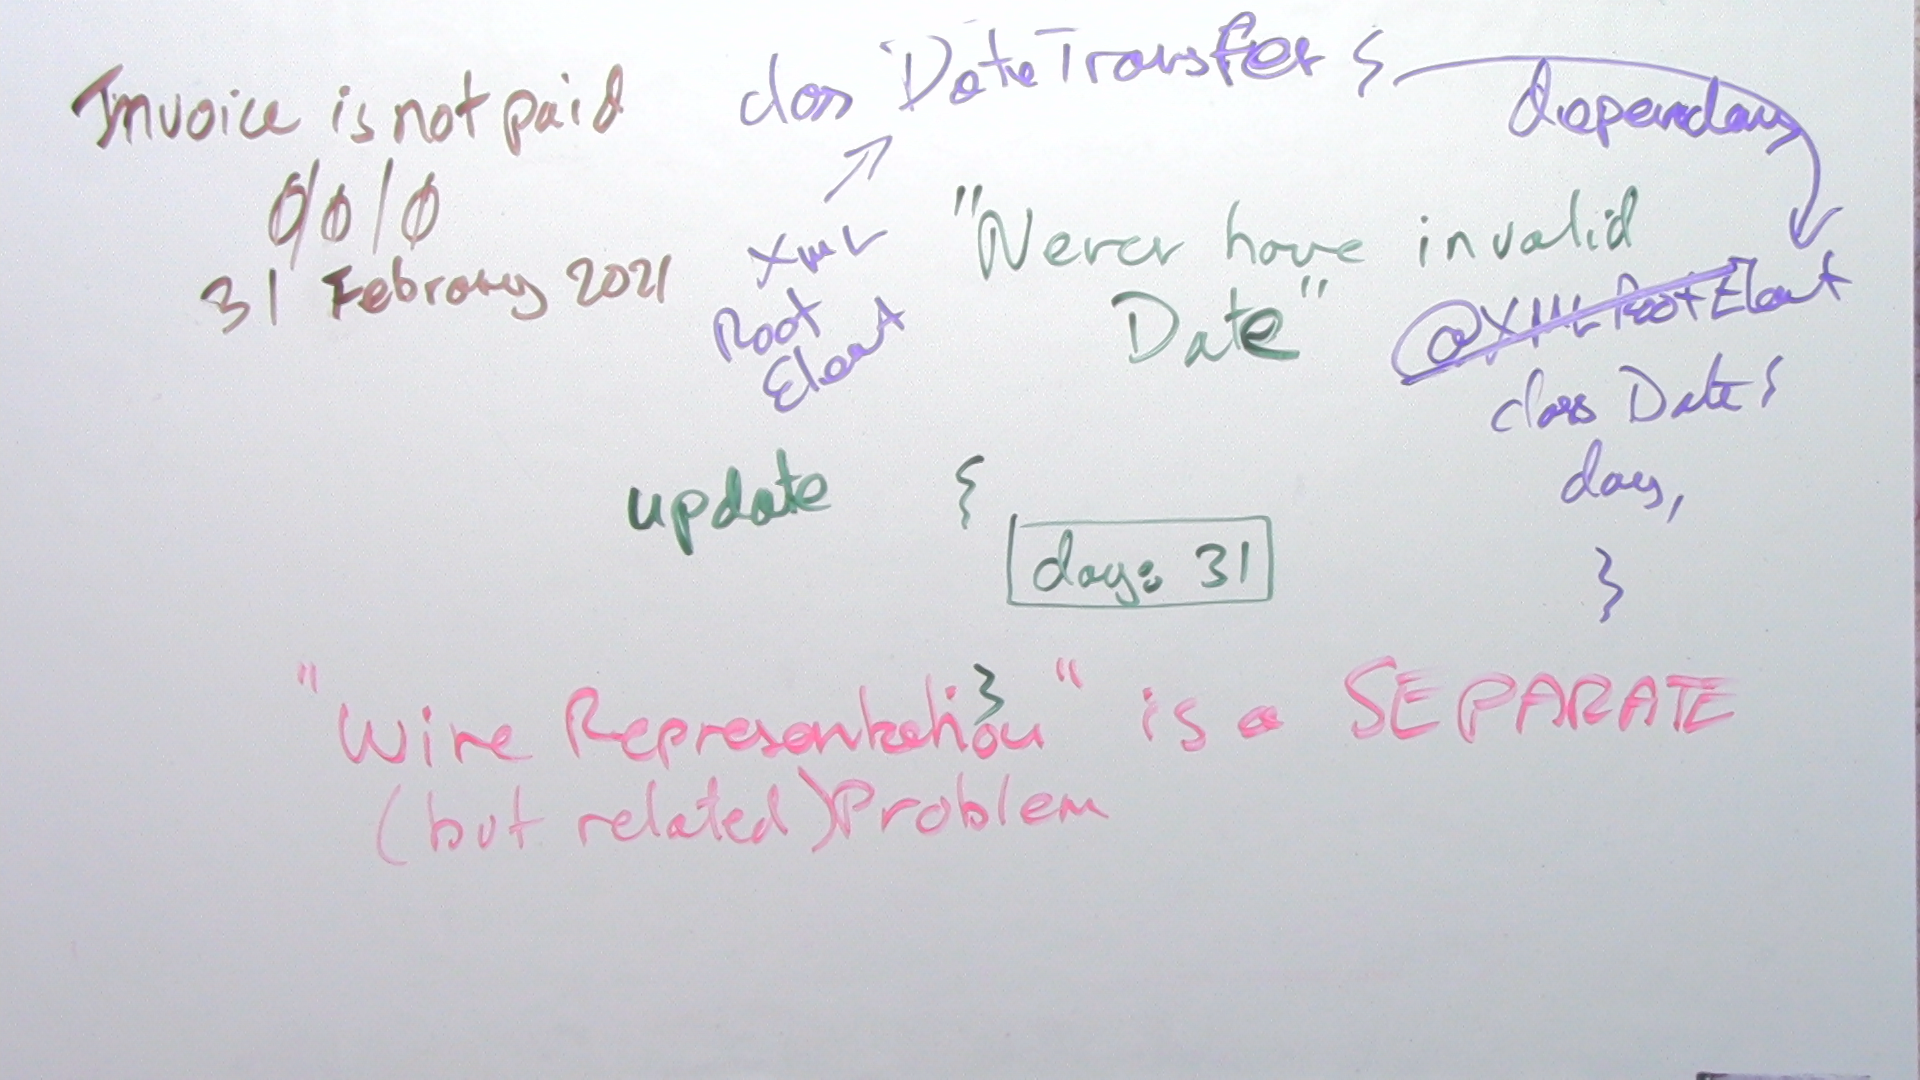 Invoice is not paid
0/0/0
31 February 2021
class DateTransfer {
XML
Root
dependency
"Never have invalid
Date"
@XMLRootElement
class Date {
day,
}
update {
day: 31
}
"Wire Representation" is a SEPARATE
(but related) Problem